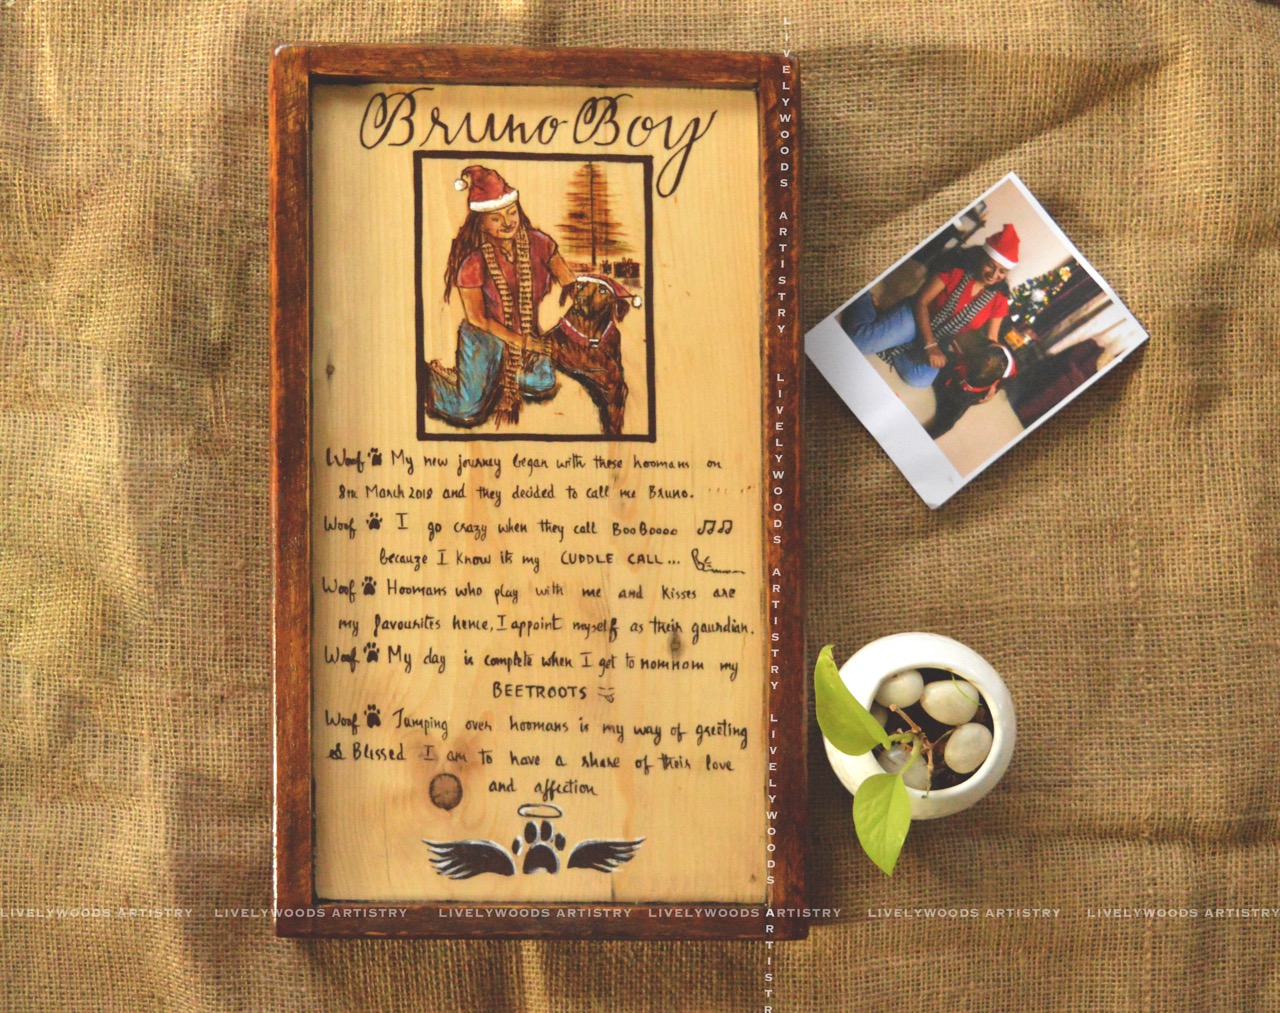 Bruno Boy
Woof My new journey began with these hoomans on
8TH March 2018 and they decided to call me Bruno.
Woof I go crazy when they call BooBoooo
because I know its my CUDDLE CALL...
Woof Hoomans who play with me and kisses are
my favourites hence, I appoint myself as their gaurdian.
Woof My day is complete when I get to nomnom my
BEETROOTS
Woof Jumping over hoomans is my way of greeting
& Blessed I am to have a share of their love
and affection
LIVELYWOODS ARTISTRY LIVELYWOODS ARTISTRY LIVELYWOODS ARTISTRY LIVELYWOODS ARTISTRY LIVELYWOODS ARTISTRY LIVELYWOODS ARTISTRY
LIVELYWOODS ARTISTRY LIVELYWOODS ARTISTRY LIVELYWOODS ARTISTR